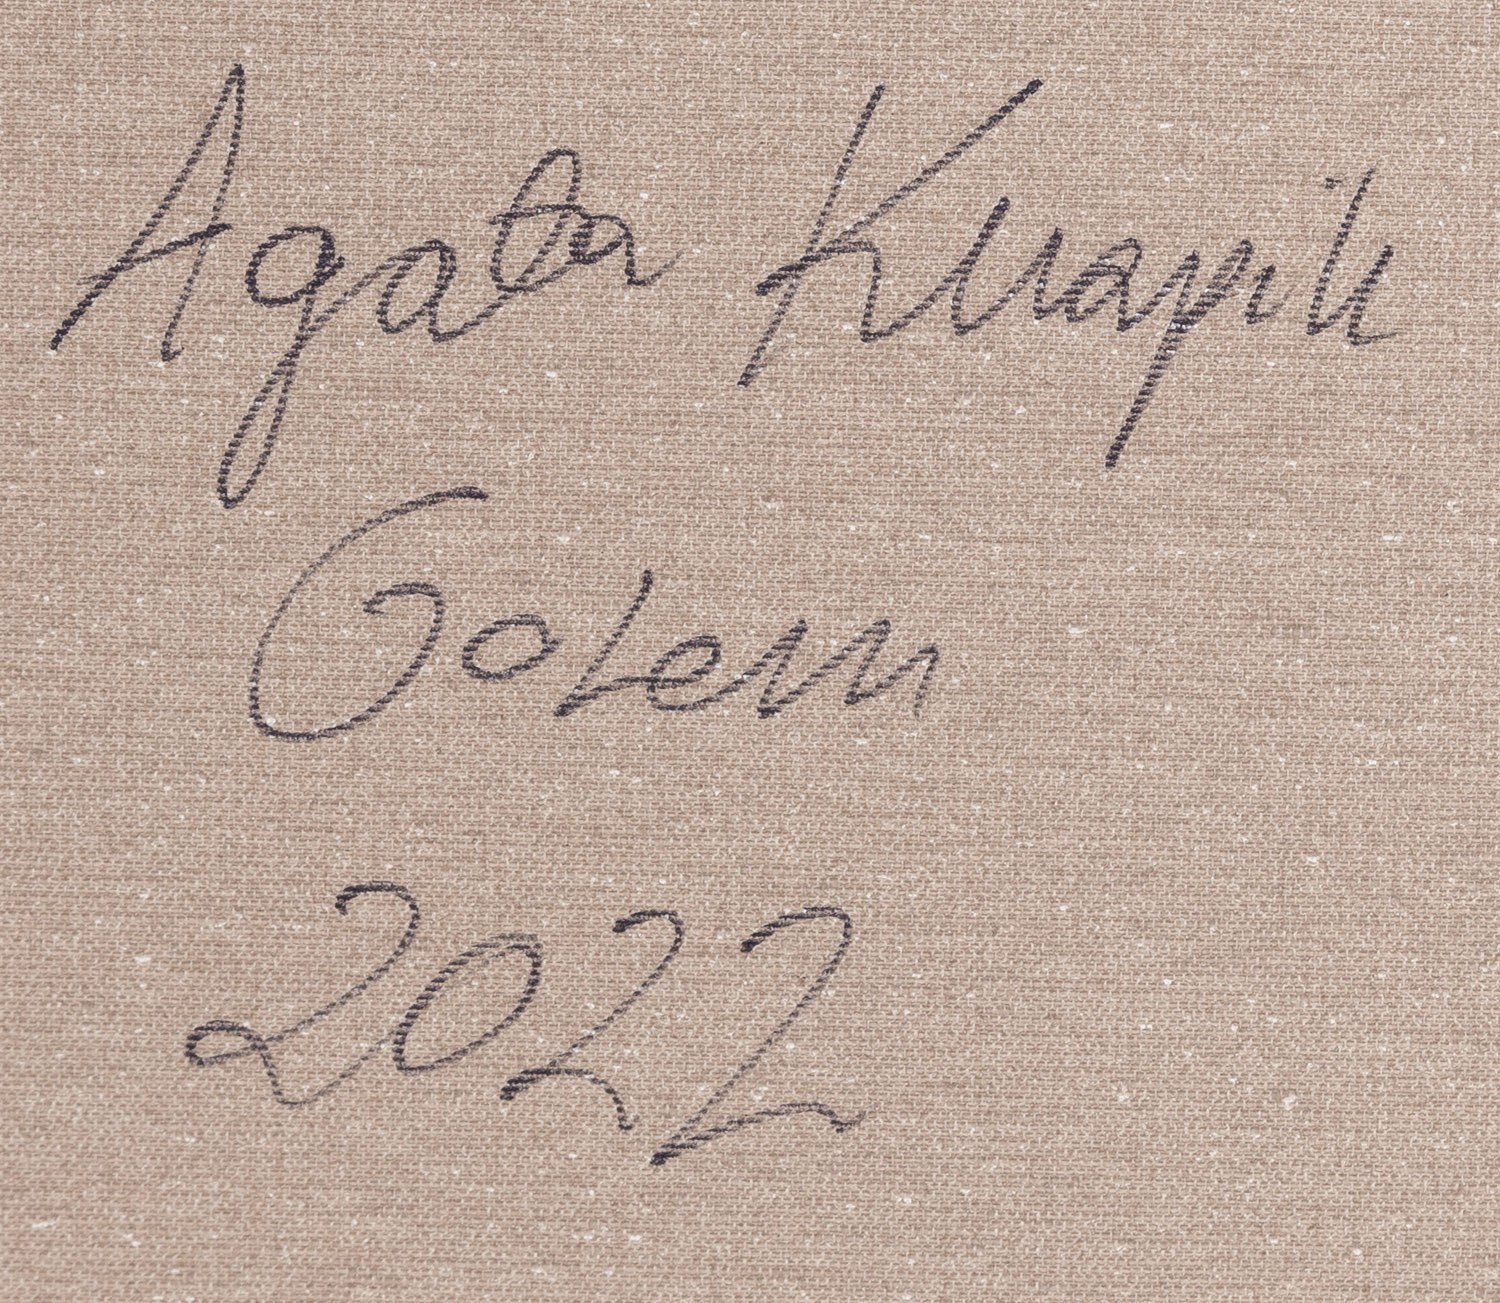 Agata Knapik
Golem
2022